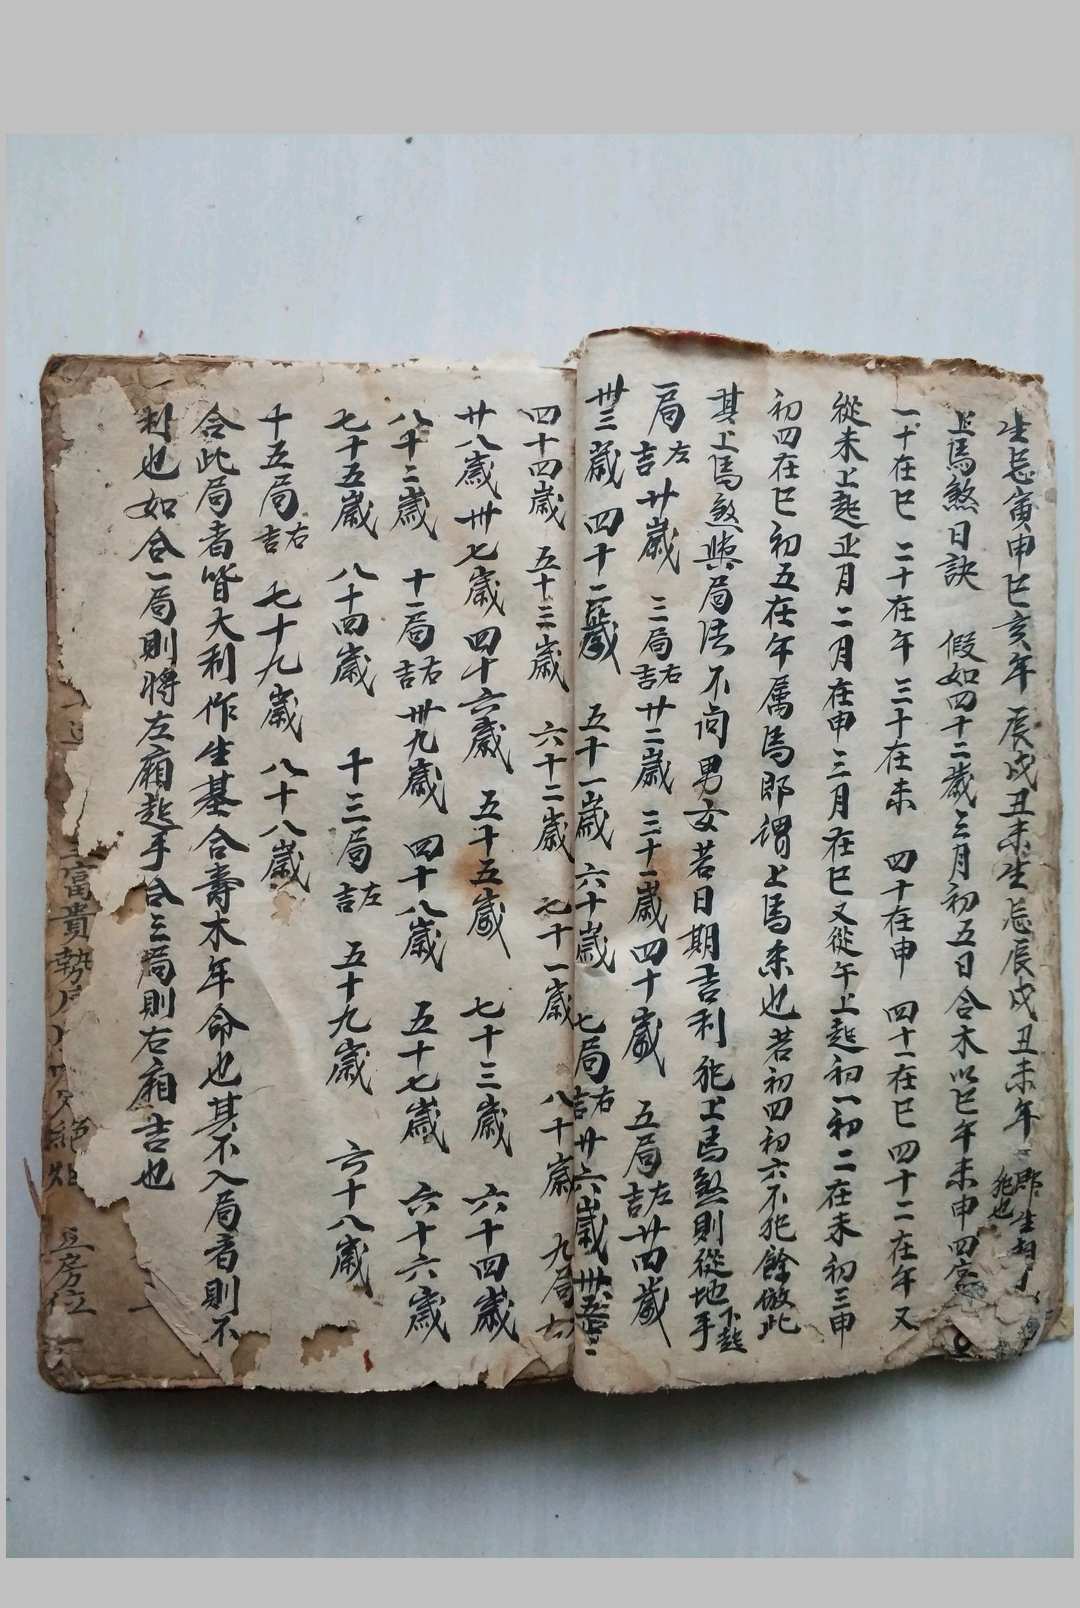 生忌寅申巳亥年 辰戌丑未生忌辰戌丑未年
犯也
上馬煞日訣 假如四十二歲三月初五日合木以巳午未申四宮
一十在巳 二十在午 三十在未 四十在申 四十一在巳 四十二在午 又
從未上起正月 二月在申 三月在巳 又從午上起初一 初二在未 初三申
初四在巳 初五在午 属馬即謂上馬杀也 若初四初六不犯 餘倣此
其上馬煞與局法 不问男女 若日期吉利 犯上馬煞則從地手
下起
一局左吉 廿歲 三局右吉 廿二歲 三十一歲 四十歲 五局左吉 廿四歲
卅三歲 四十二歲 五十一歲 六十歲 七局右吉 廿六歲 卅五
四十四歲 五十三歲 六十二歲 七十一歲 八十歲 九局
廿八歲 卅七歲 四十六歲 五十五歲 七十三歲 六十四歲
八十二歲 十一局右吉 卅九歲 四十八歲 五十七歲 六十六歲
七十五歲 八十四歲 十三局左吉 五十九歲 六十八歲
十五局右吉 七十九歲 八十八歲
合此局者皆大利作生基合壽木年命也其不入局者則不
利也如合一局則將左廂起手合三局則右廂吉也
富貴勢
絕
房位